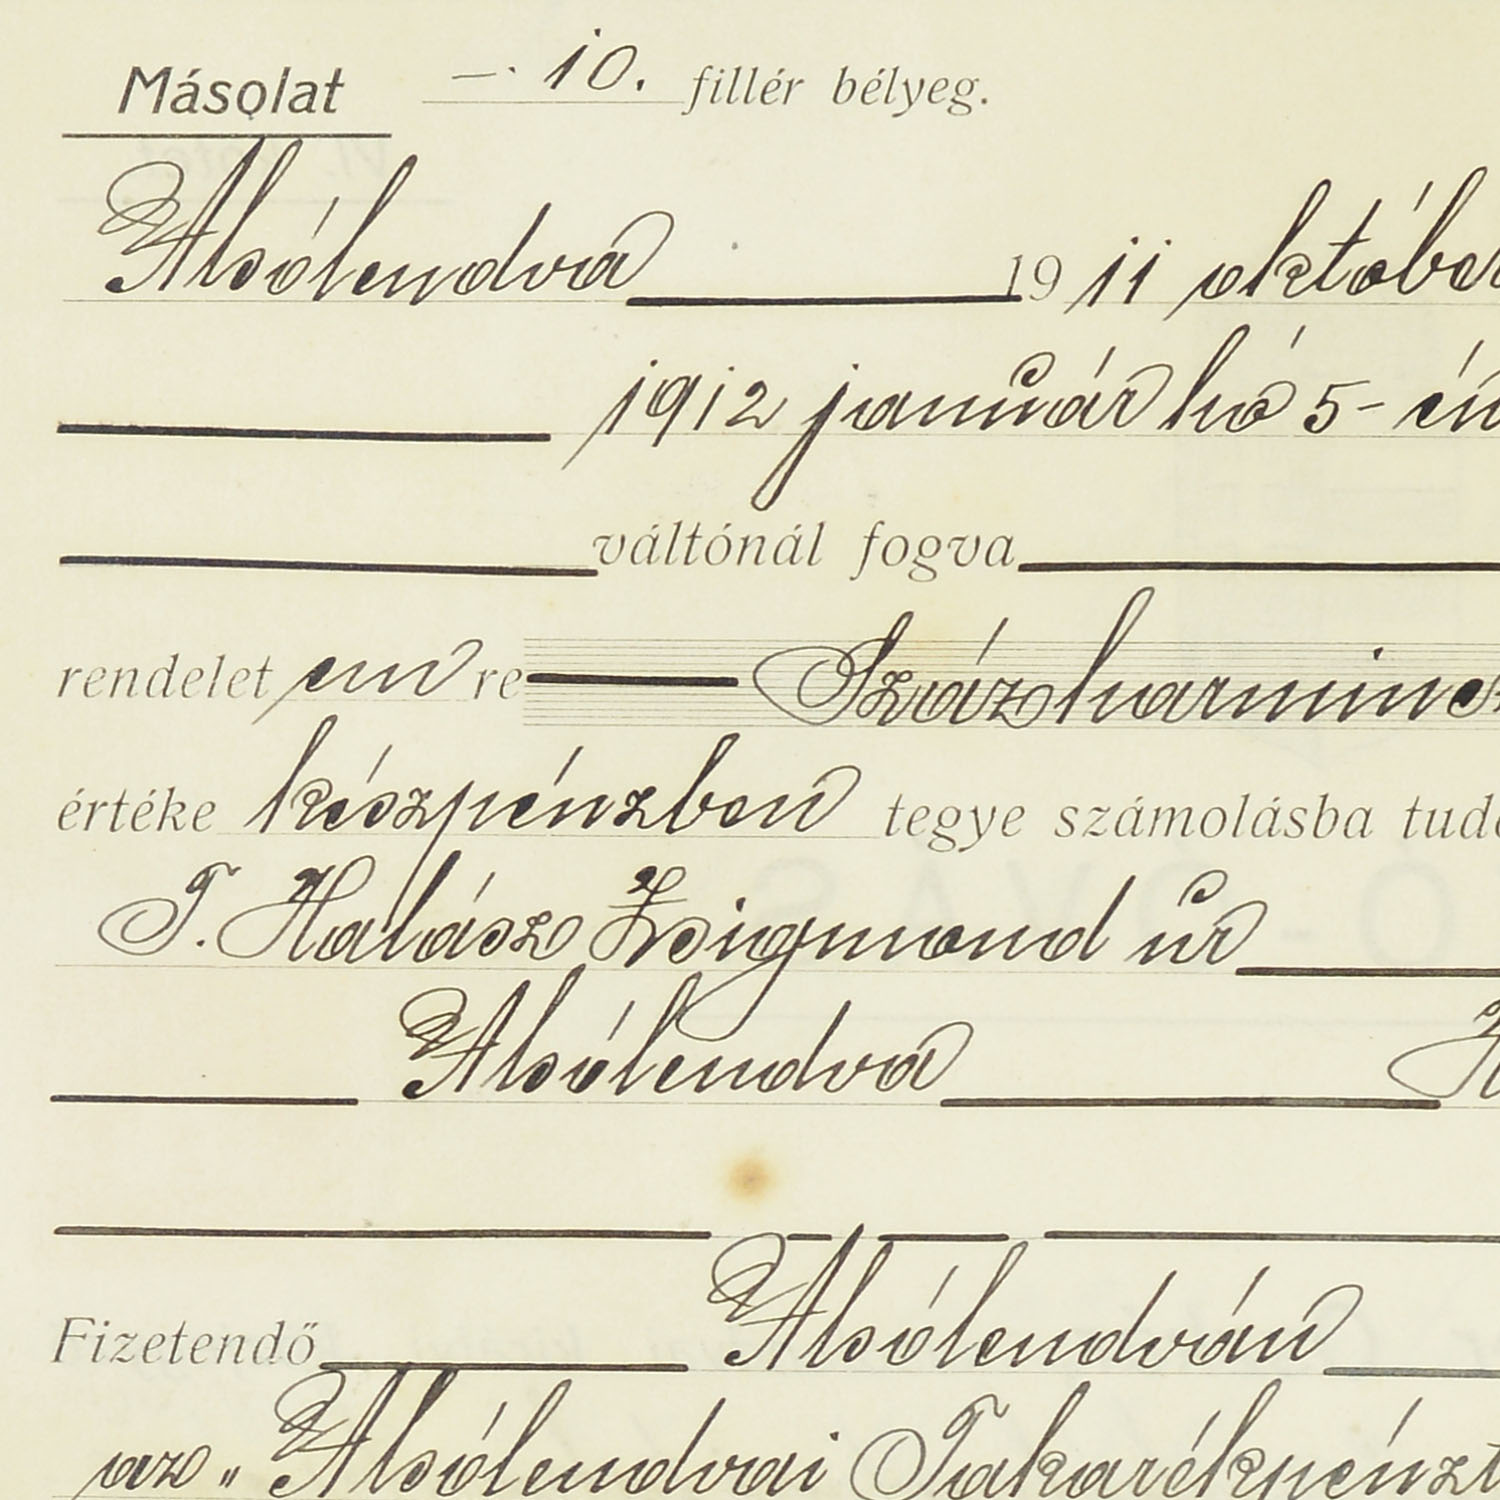 Másolat —. 10. fillér bélyeg.
Alsólendva 1911 október
1912 január hó 5-én
váltónál fogva
rendelet em re Százharmincz
értéke készpénzben tegye számolásba tudó
T. Halász Zsigmond úr
Alsólendva
Fizetendő Alsólendván
az „Alsólendvai Takarékpénzt